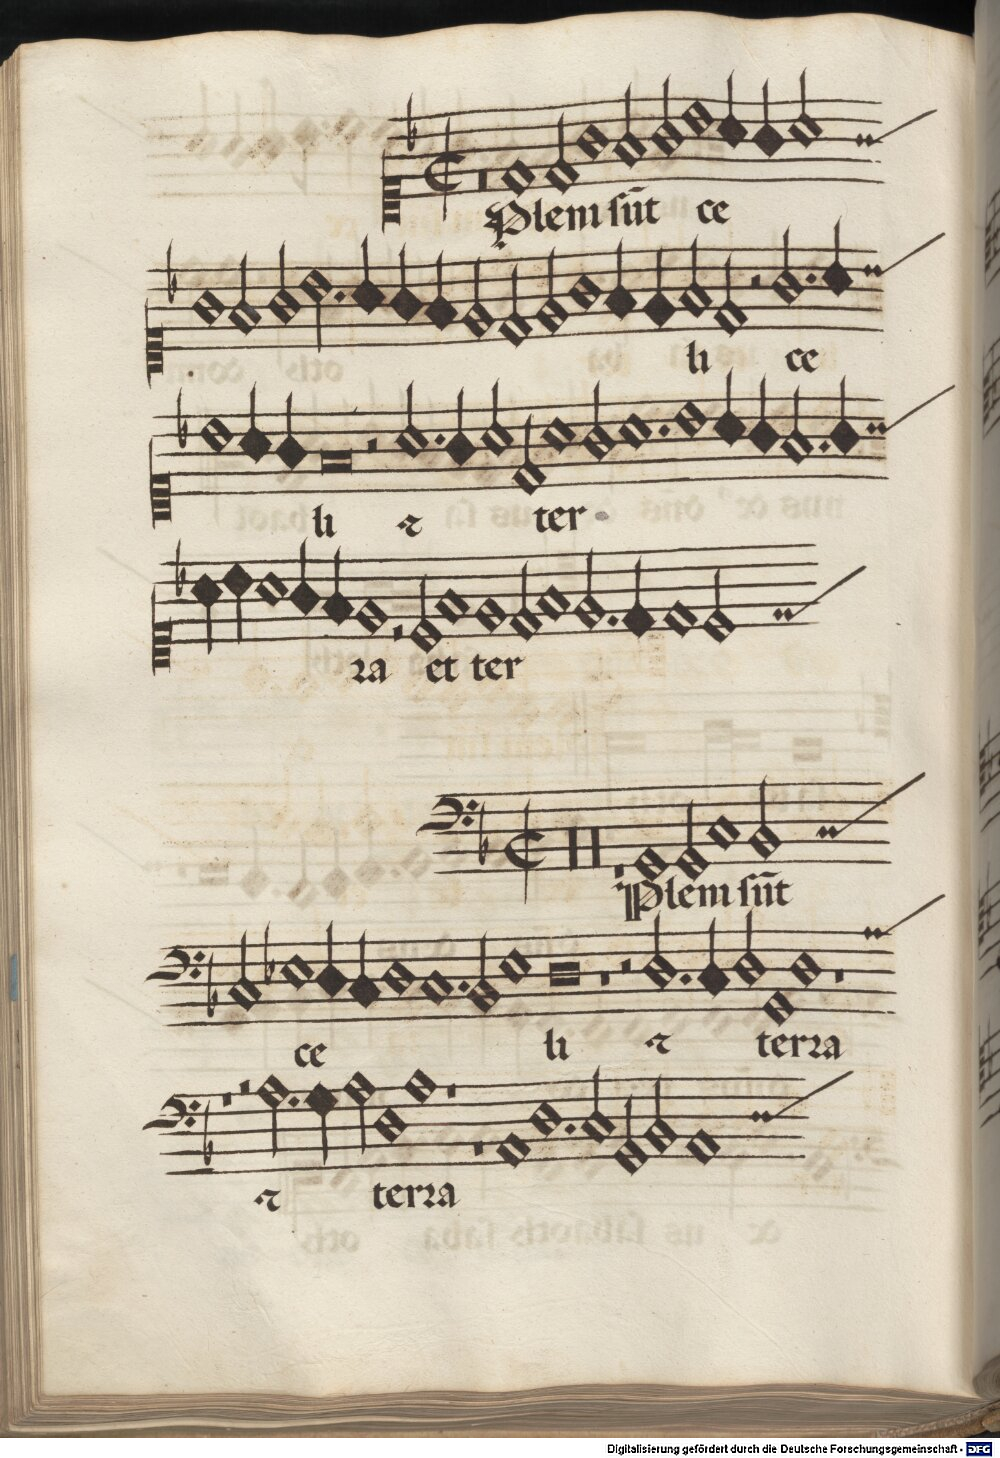 Plem sūt ce
li ce
li ⁊ ter
ra et ter
Plem sūt
ce li ⁊ terra
⁊ terra
Digitalisierung gefördert durch die Deutsche Forschungsgemeinschaft - DFG